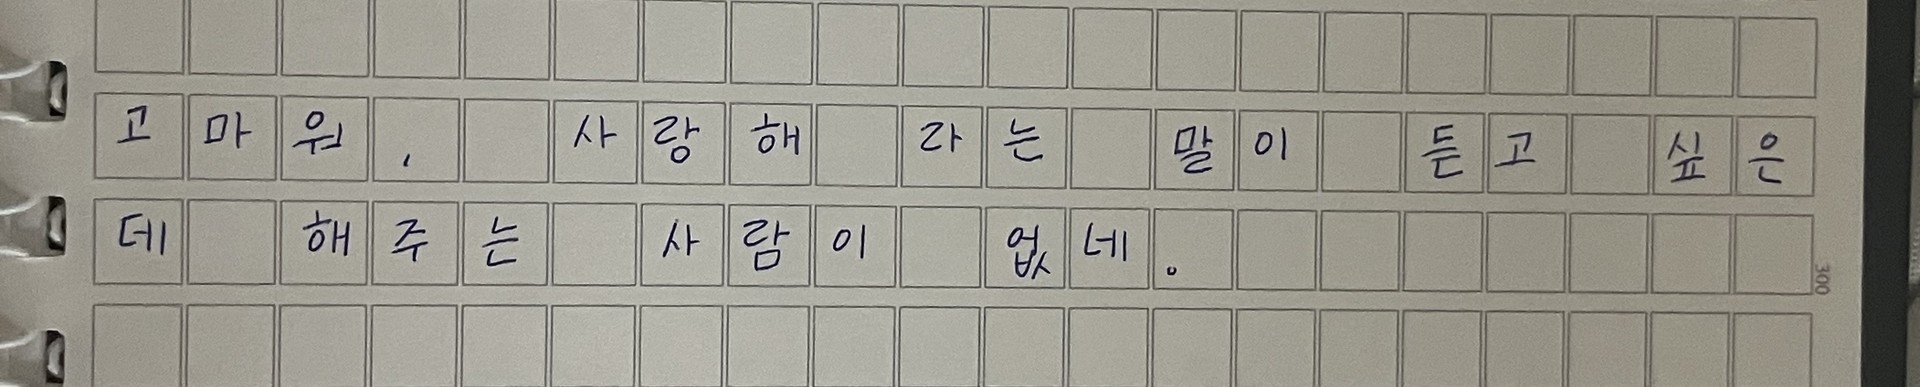 고마워, 사랑해 라는 말이 듣고 싶은
데 해주는 사람이 없네.
300